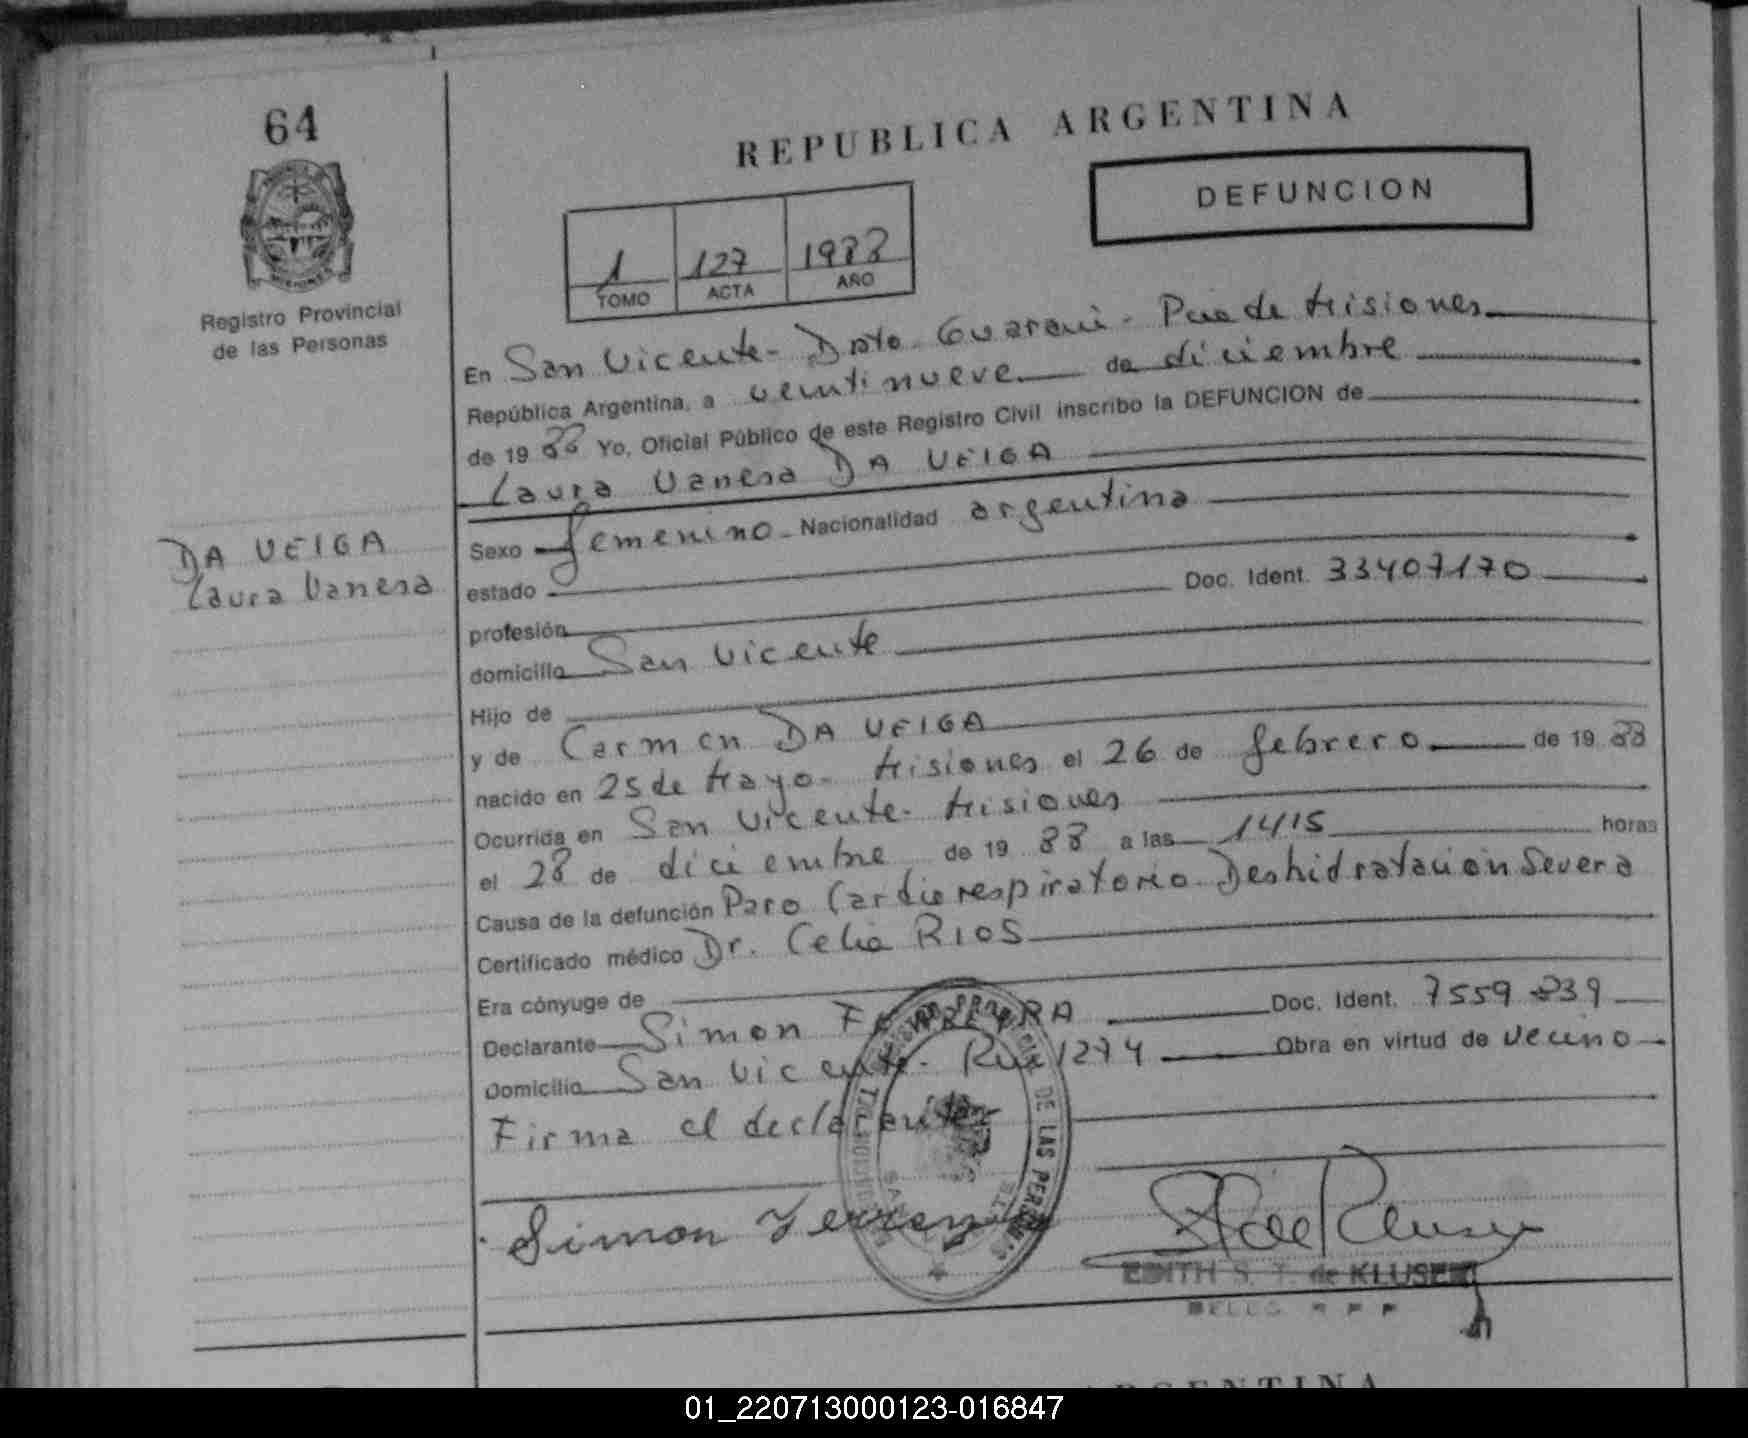 64
REPUBLICA ARGENTINA
DEFUNCION
1 127 1988
TOMO ACTA AÑO
Registro Provincial
de las Personas
En San Vicente - Dpto. Guaraní - Pcia de Misiones
República Argentina, a veintinueve de diciembre
de 19 88 Yo, Oficial Público de este Registro Civil inscribo la DEFUNCION de
Laura Vanesa DA VEIGA
DA VEIGA
Laura Vanesa
Sexo femenino - Nacionalidad argentina
estado
profesión Doc. Ident. 33407170
domicilio San Vicente
Hijo de
y de Carmen DA VEIGA
nacido en 25 de Mayo - Misiones el 26 de febrero de 19 88
Ocurrida en San Vicente - Misiones
el 28 de diciembre de 19 88 a las 1415 horas
Causa de la defunción Paro Cardiorespiratorio. Deshidratación Severa
Certificado médico Dr. Celia RIOS
Era cónyuge de
Declarante Simon FERREYRA Doc. Ident. 7559239
Domicilio San Vicente - Ruta 1274 Obra en virtud de vecino
Firma el declarante
DE LAS PERSONAS
Simon
EDITH S. T. de KLUSEN
ARGENTINA
01_220713000123-016847